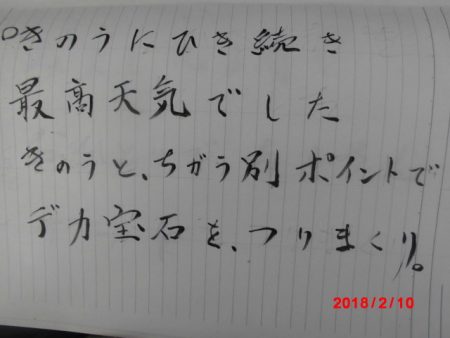 ○きのうにひき続き
最高天気でした
きのうと、ちがう別ポイントで
デカ宝石を、つりまくり。
2018/2/10